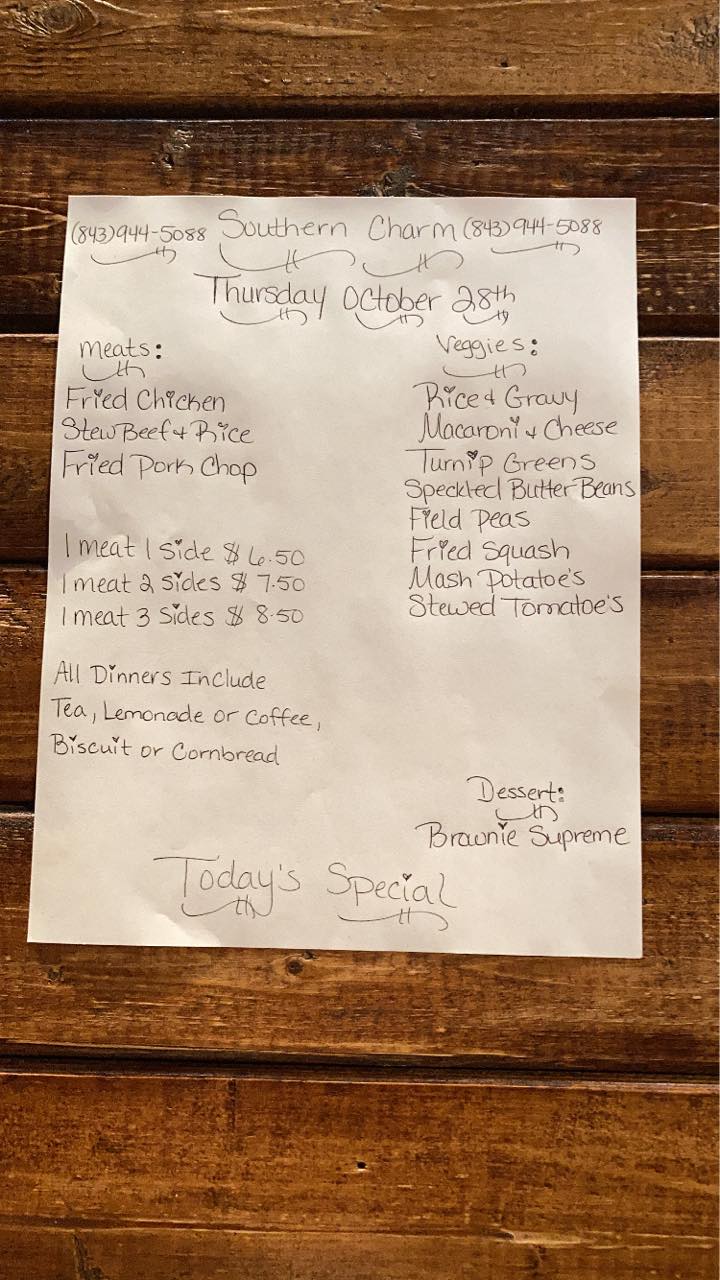 (843)944-5088 Southern Charm (843)944-5088
Thursday October 28th
Meats:
Fried Chicken
Stew Beef & Rice
Fried Pork Chop
1 meat 1 side $ 6.50
1 meat 2 sides $ 7.50
1 meat 3 sides $ 8.50
All Dinners Include
Tea, Lemonade or Coffee,
Biscuit or Cornbread
Veggies:
Rice & Gravy
Macaroni & Cheese
Turnip Greens
Speckled Butter Beans
Field Peas
Fried Squash
Mash Potatoe's
Stewed Tomatoe's
Dessert:
Brownie Supreme
Today's Special